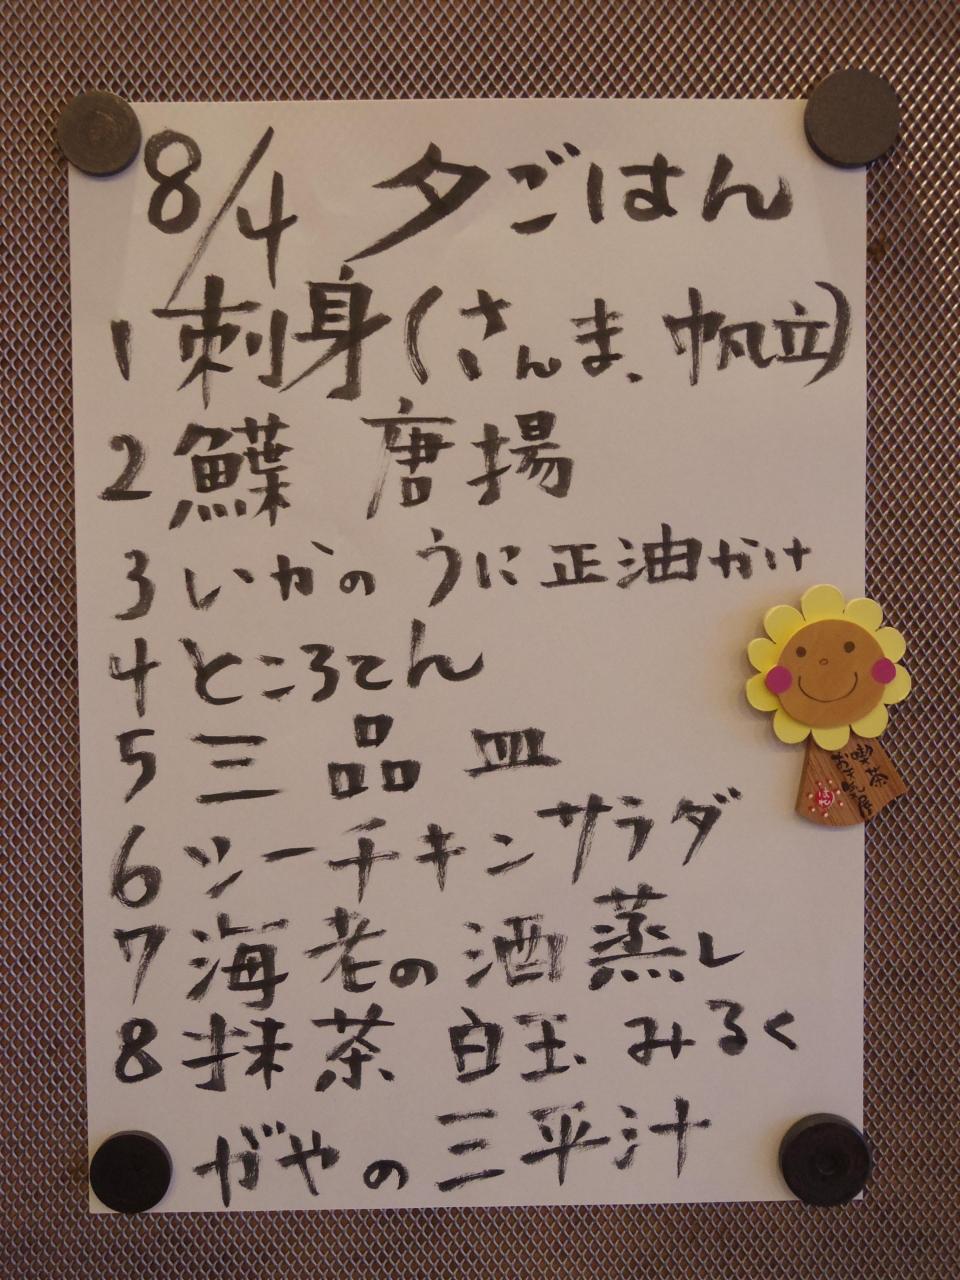 8/4 夕ごはん
1 刺身(さんま、帆立)
2 鰈 唐揚
3 いかの うに正油かけ
4 ところてん
5 三品皿
6 ツーチキンサラダ
7 海老の酒蒸し
8 抹茶 白玉 みるく
がやの三平汁